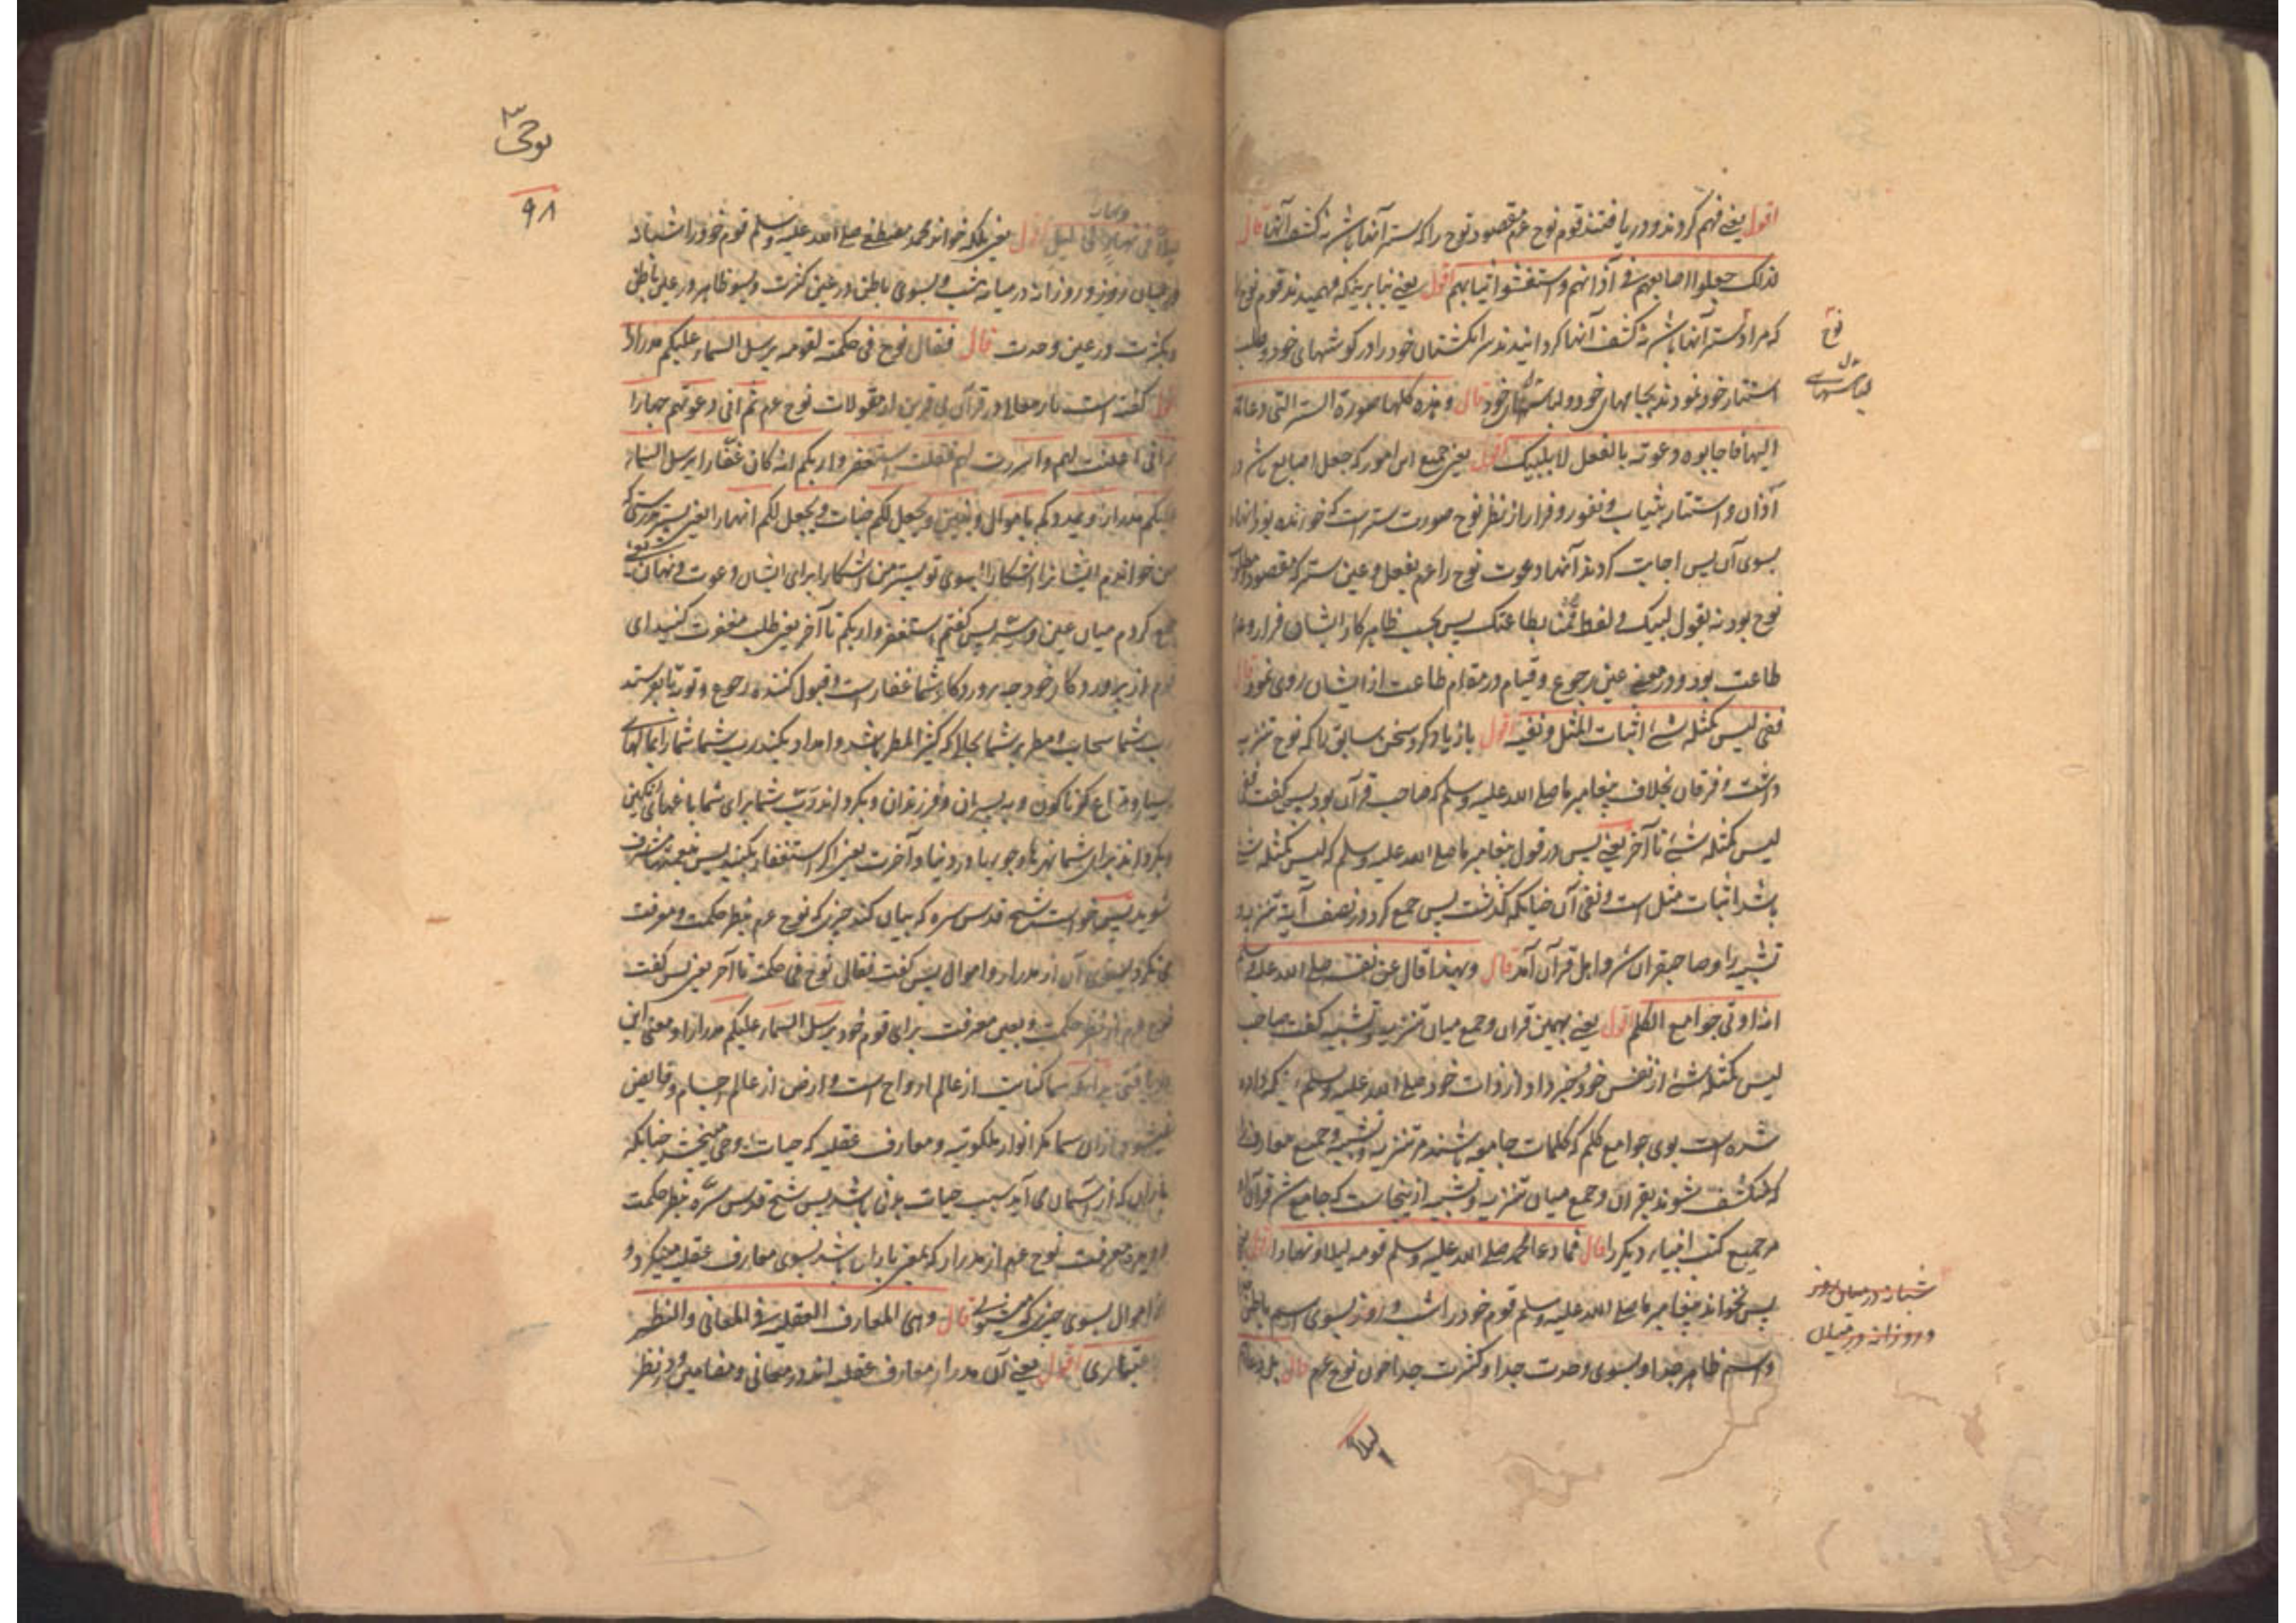 اقول یعنے فهم کردند و دریافتند قوم نوح عم مقصود نوح را که ستر آنها باشد نه کشف آنها قال
لذلک جعلوا اصابعهم فے آذانهم و استغشوا ثیابهم اقول یعنے بنابر اینکه فهمیدند قوم نوح
که مراد ستر آنها باشد نه کشف آنها کردانیدند سر انکشتان خود را در کوشهای خود و طلب
استتار خود نمودند بجامهای خود و لباسهای خود قال و هذه کلها صورة الستر التی دعاهم
الیها فاجابوه دعوته بالفعل لا بلبیک اقول یعنے جمیع این امور که جعل اصابع باشد در
آذان و استتار بثیاب و نفور و فرار از نظر نوح صورت ستر است که خوانده بود آنها را
بسوی آن پس اجابت کردند آنها دعوت نوح را عم بفعل و عین ستر که مقصود
نوح بود نه بقول لبیک و لفظ بطاعتک پس بحسب ظاهر کار ایشان فرار و عدم
طاعت بود و در معنے عین رجوع و قیام در مقام طاعت از ایشان روی نمود قال
ففی لیس کمثله شئ اثبات المثل و نفیه اقول باز یاد کرد سخن سابق را که نوح تنزیه
داشت و فرقان بخلاف پیغامبر ما صلے الله علیه وسلم که صاحب قرآن بود پس کفت ففی
لیس کمثله شئ تا آخر یعنے پس در قول پیغامبر ما صلے الله علیه وسلم که لیس کمثله شئ
باشد اثبات مثل است و نفی آن چنانکه کذشت پس جمع کرد در نصف آیة تنزیه و
تشبیه را و صاحب قرآن شد و اهل قرآن آمد قال و بهذا قال عن نفسه صلے الله علیه وسلم
انه اوتی جوامع الکلم اقول یعنے بهمین قرآن و جمع میان تنزیه و تشبیه کفت صاحب
لیس کمثله شئ از نفس خود و خبر داد از ذات خود صلے الله علیه وسلم که داده
شده است بوی جوامع کلم که کلمات جامعه باشند مر تنزیه و تشبیه و جمیع معارف را
که منکشف شوند بقرآن و جمع میان تنزیه و تشبیه ازینجاست که جامع شد قرآن او
مر جمیع کتب انبیاء دیکر را قال فما دعا محمد صلے الله علیه وسلم قومه لیلا و نهارا اقول
پس نخواند پیغامبر ما صلے الله علیه وسلم قوم خود را شب و روز بسوی اسم باطن
و اسم ظاهر جدا و بسوی وحدت جدا و کثرت جدا چون نوح عم قال بل دعاهم
نوح
لباسهاے
شبانه در میان روز
و روزانه در میان
لیلا
نوحی
۹۸
و نهارا
لیلا فی نهار فی لیل اقول یعنے بلکه خواند محمد مصطفے صلے الله علیه وسلم قوم خود را شبانه
در میان روز و روزانه در میانه شب و بسوی باطن در عین کثرت و بسوی ظاهر در عین باطن
و بکثرت در عین وحدت قال فقال نوح فی حکمته لقومه یرسل السماء علیکم مدرارا
اقول کفته است باریتعالی در قرآن از مقولات نوح عم ثم انی دعوتهم جهارا
ثم انی اعلنت لهم و اسررت لهم فقلت استغفروا ربکم انه کان غفارا یرسل السماء
علیکم مدرارا و یمددکم باموال و بنین و یجعل لکم جنات و یجعل لکم انهارا یعنے پس بدرستی که
من خواندم ایشانرا آشکارا بسوی تو پستر من آشکارا برای ایشان دعوت و نهان
جمع کردم میان علن و سر پس کفتم استغفروا ربکم تا آخر یعنے طلب مغفرت کنید ای
قوم از پروردکار خود چه پروردکار شما غفار است و قبول کننده رجوع و توبه تا بفرستد
رب شما سحاب و مطر بر شما بحالی که کثیر المطر باشد و امداد بکند رب شما شما را بمالهاے
بسیار و متاع کوناکون و به پسران و فرزندان و بکرداند رب شما برای شما باغهای
و بکرداند برای شما نهرها و جویها در دنیا و آخرت یعنے اکر استغفار بکنید پس
شوید پس خواست شیخ قدس سره که بیان کند چیزی که نوح عم بنظر حکمت و معرفت
می نکرد بسوی آن از مدرار و اموال پس کفت فقال نوح فی حکمته تا آخر یعنے پس کفت
نوح عم از نظر حکمت و بعین معرفت برای قوم خود یرسل السماء علیکم مدرارا و معنی این
بدانکه سما کنایت از عالم ارواح است و ارض از عالم اجسام و فایض
میشود ازان سما مکر انوار ملکوتیه و معارف عقلیه که حیات روحی میبخشد چنانکه
باران که از آسمان می آید سبب حیات بدنی باشد پس شیخ قدس سره بنظر حکمت
و دیده معرفت نوح عم از مدرار که بمعنی باران باشد بسوی معارف عقلیه میکرد و
از اموال بسوی چیزی که قال و هی المعارف العقلیة فے المعانی و النظر
الاعتباری اقول یعنے آن مدرار معارف عقلیه اند در معانی و مضامین و در نظر